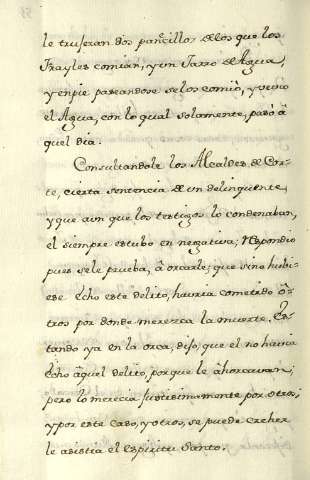 le truseran dos pañcillos de los que los
Frayles comian, y un Jarro de Agua,
y en pie paseandose se los comiò, y vevio
el Agua, con lo qual solamente, pasò â
quel dia.
Consultandole los Alcaldes de Cor-
te, cierta sentencia de un delinquente,
y que aun que los testigos lo condenaban,
el siempre estubo en negativa; Respondio
pues se le prueba, â orcarle; que si no hubi-
ese êcho este delito, havria cometido ô-
tros por donde merezca la muerte. Es-
tando ya en la orca, dijo, que el no havia
êcho âquel delito, porque le âhorcavan,
pero lo merecia justisimamente por otros;
y por este caso, y otros, se puede creher
le asistia el Espiritu Santo.